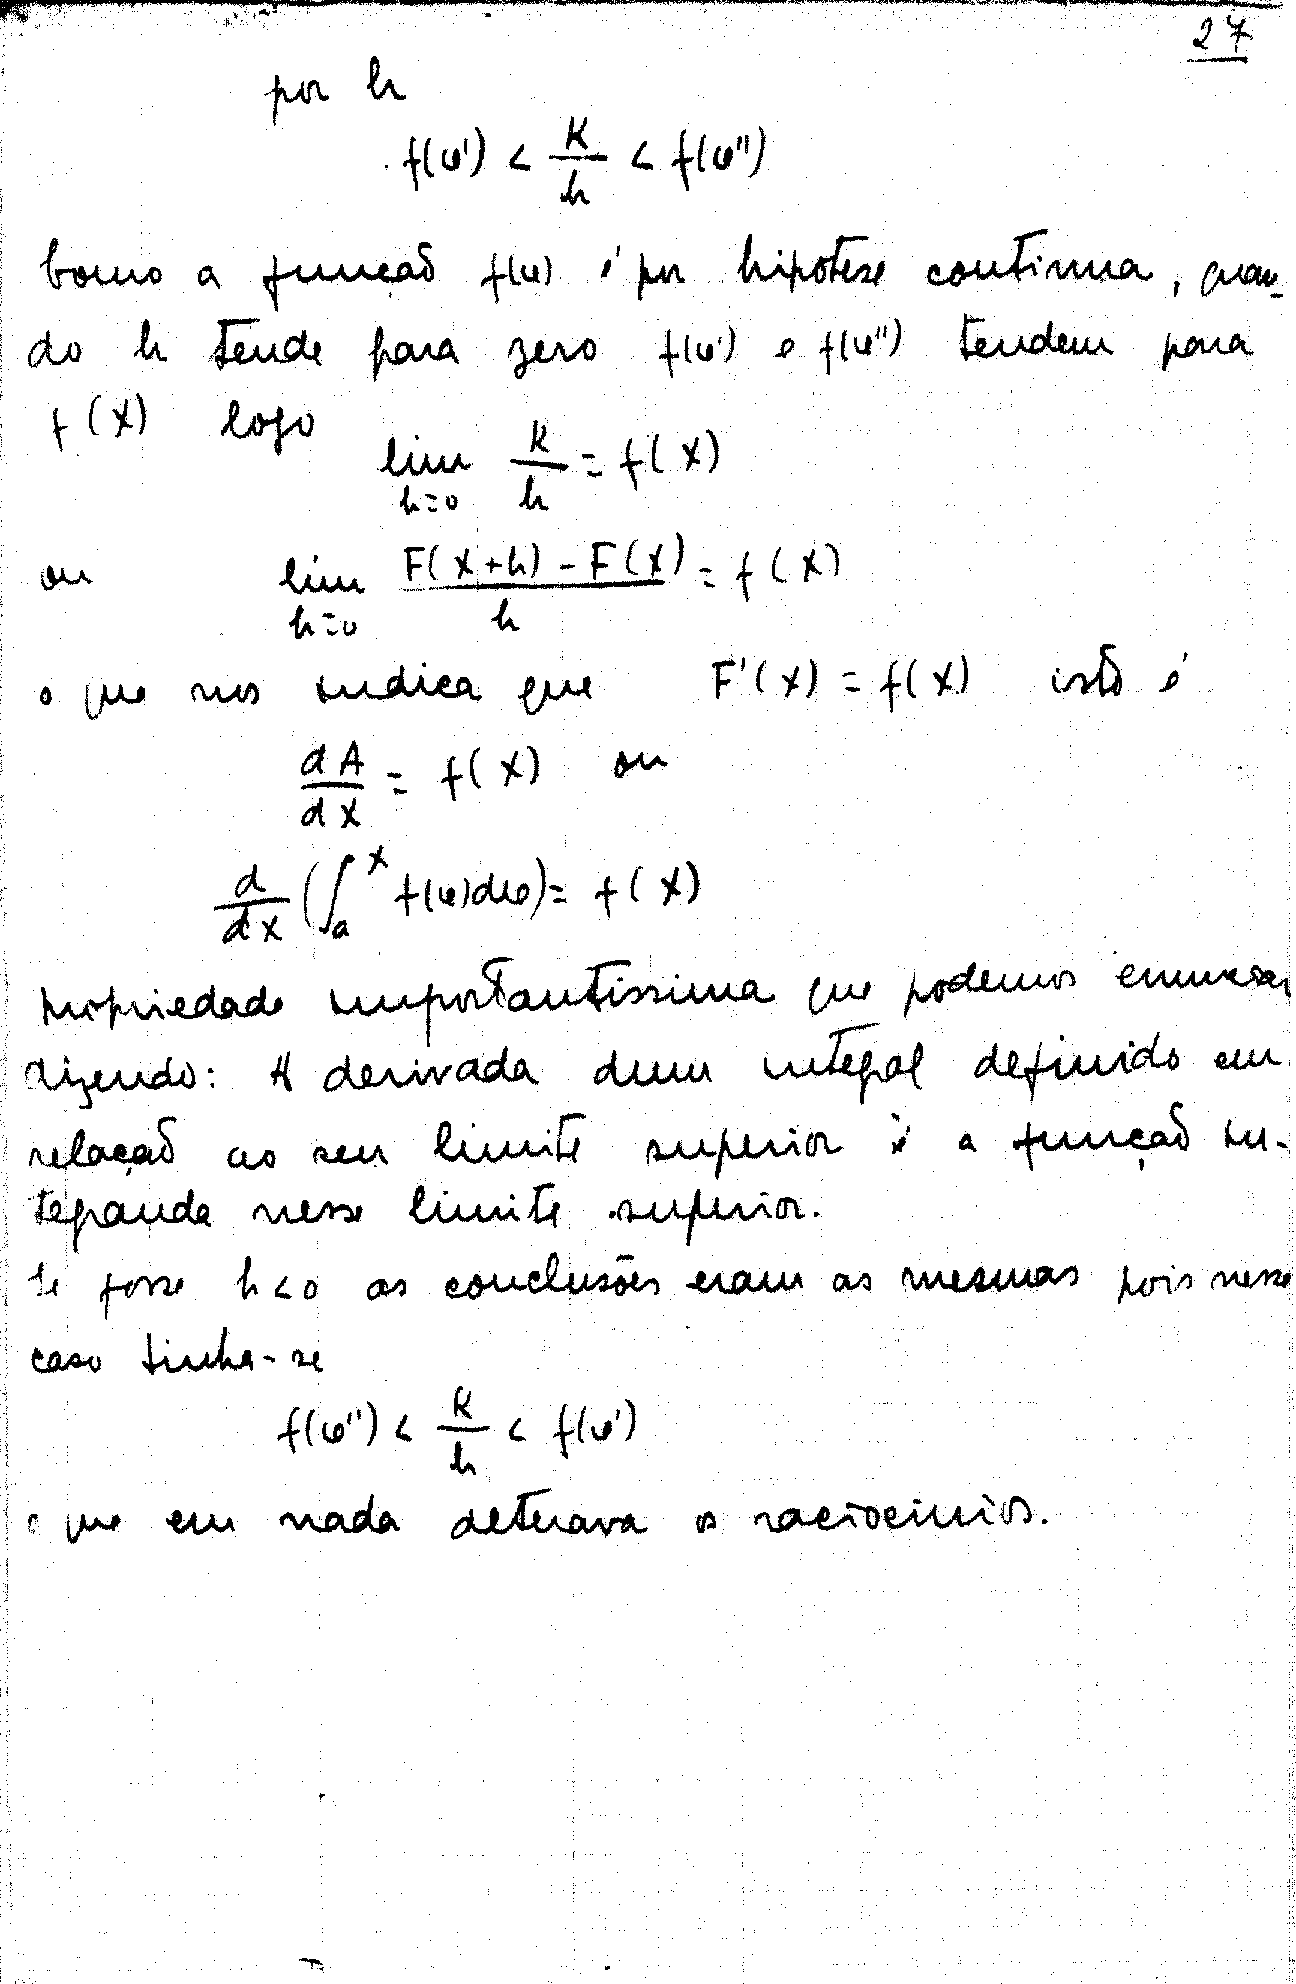 27
por h
f(φ') < K/h < f(φ'')
Como a funcaõ f(φ) é por hipotese continua, quan-
do h tende para zero f(φ') e f(φ'') tendem para
f(X) logo
lim K/h = f(X)
h=0
ou lim F(X+h) - F(X)/h = f(X)
h=0
o que nos indica que F'(X) = f(X) isto é
dA/dX = f(X) ou
d/dX (∫ₐˣ f(φ)dφ) = f(X)
propriedade importantissima que podemos enunciar
dizendo: A derivada dum integral definido em
relaçaõ ao seu limite superior é a funçaõ in-
tegranda nesse limite superior.
Se fosse h<0 as conclusões eram as mesmas pois nesse
caso tinha-se
f(φ'') < K/h < f(φ')
o que em nada alterava os raciocinios.